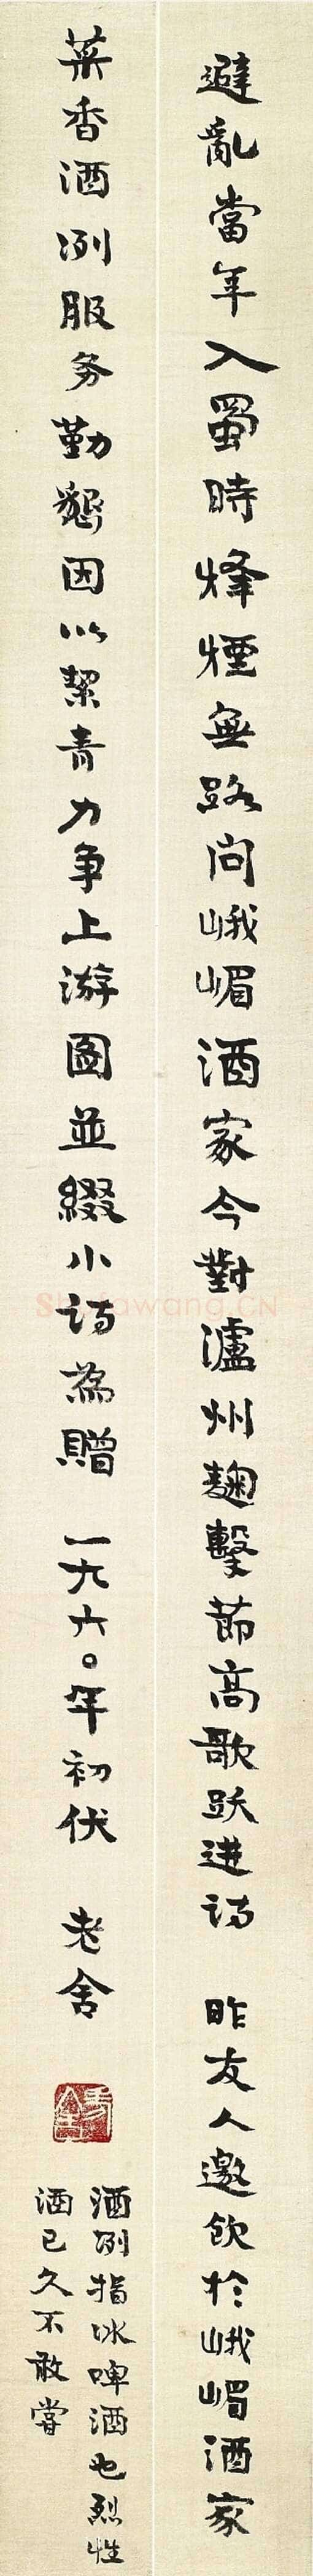 避亂當年入蜀時烽煙無路問峨嵋酒家今對瀘州麴擊節高歌跃进诗 昨友人邀飲於峨嵋酒家
菜香酒冽服务勤懇因以絜青力争上游圖並綴小诗為贈 一九六〇年初伏 老舍
酒冽指冰啤酒也烈性
酒已久不敢嘗
Shufawang.CN